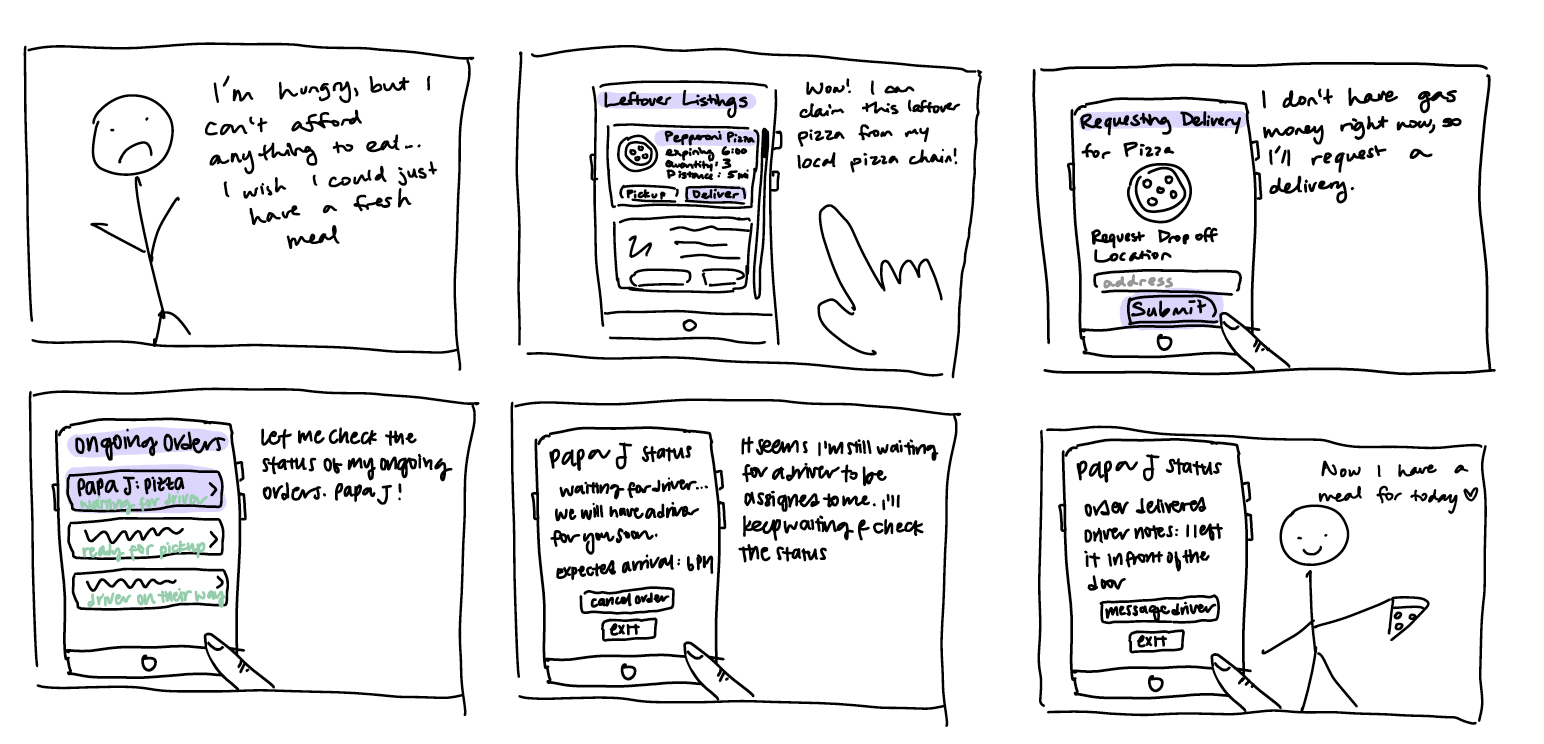 I'm hungry, but I
can't afford
anything to eat...
I wish I could just
have a fresh
meal
Leftover Listings
Pepperoni Pizza
expiring 6:00
Quantity: 3
Distance: 5mi
Pickup
Deliver
Wow! I can
claim this leftover
pizza from my
local pizza chain!
Requesting Delivery
for Pizza
Request Drop off
Location
address
Submit
I don't have gas
money right now, so
I'll request a
delivery.
ongoing orders
Papa J: pizza
waiting for driver
ready for pickup
driver on their way
Let me check the
status of my ongoing
orders. Papa J!
papa J status
waiting for driver...
we will have a driver
for you soon.
expected arrival: 6PM
cancel order
exit
It seems I'm still waiting
for a driver to be
assigned to me. I'll
keep waiting & check
the status
papa J status
order delivered
Driver notes: I left
it in front of the
door
message driver
exit
Now I have a
meal for today ♡